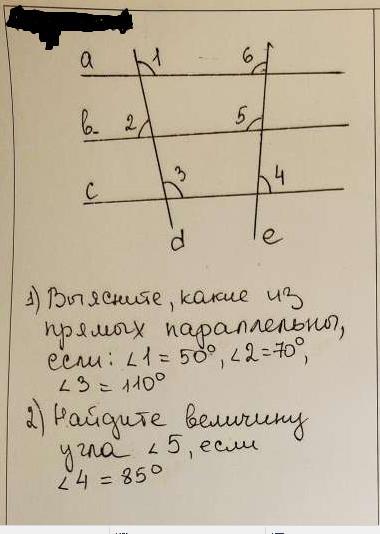 a 1 6
в 2 5
c 3 4
d e
1) Выясните, какие из
прямых параллельны,
если: ∠1 = 50°, ∠2=70°,
∠3 = 110°
2) Найдите величину
угла ∠5, если
∠4 = 85°